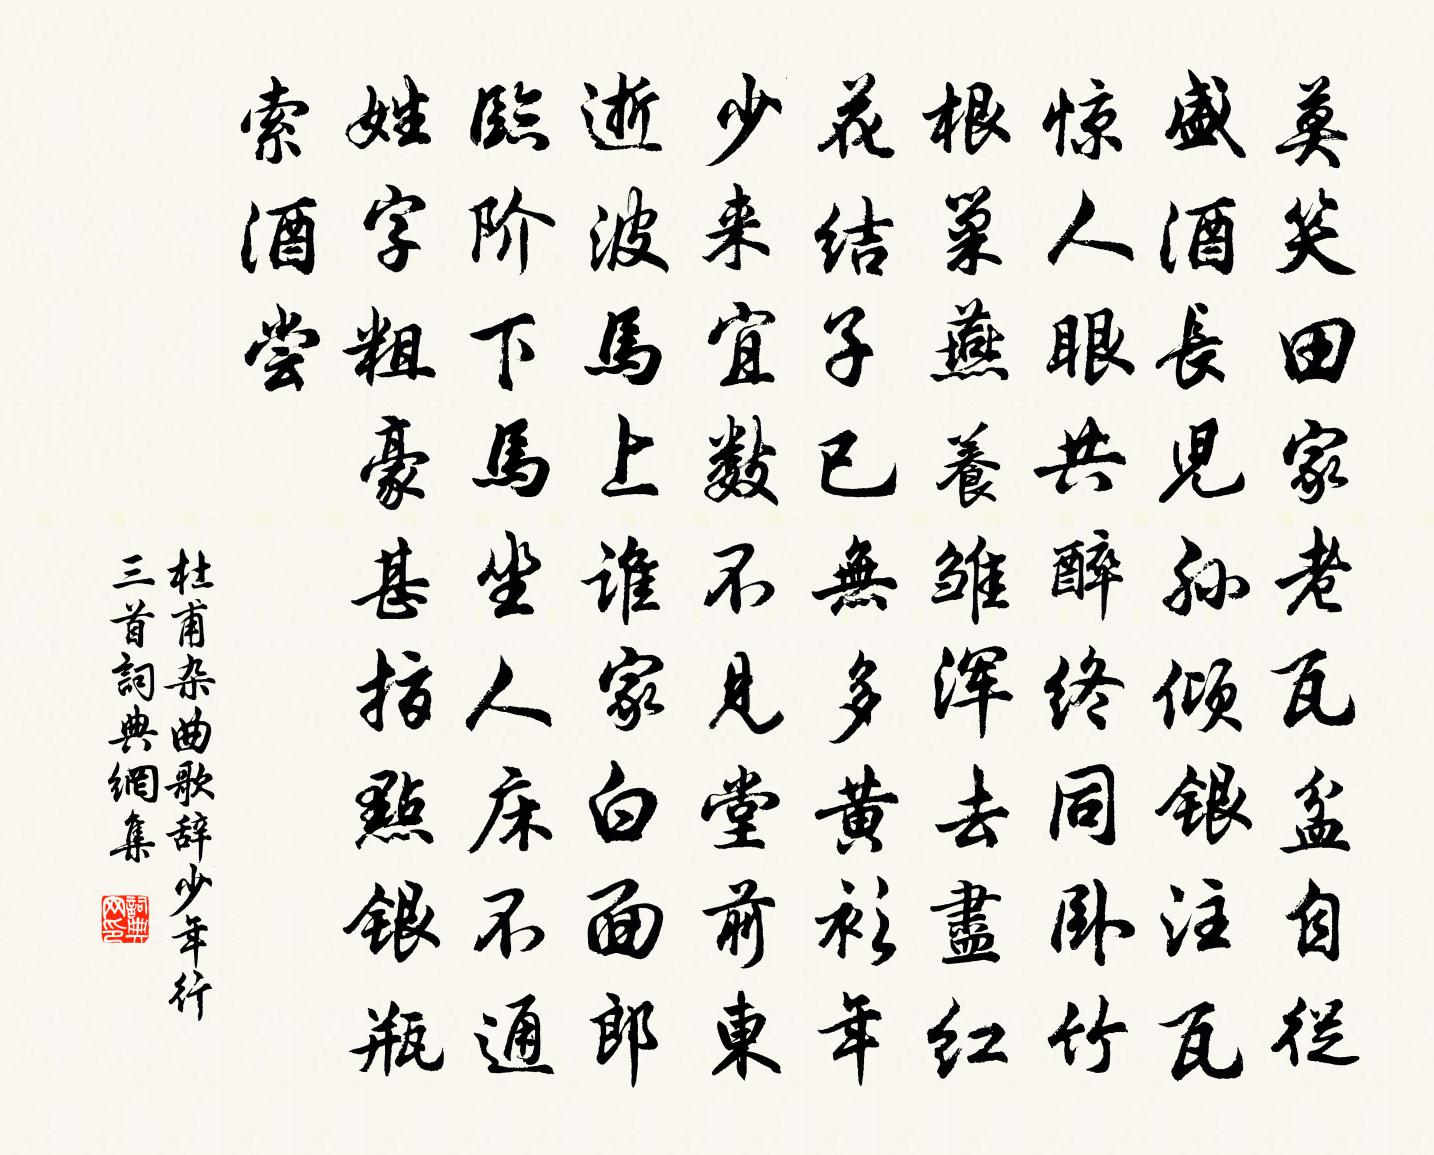 莫笑田家老瓦盆自従
盛酒長児孙倾银注瓦
惊人眼共醉终同卧竹
根巢燕養雏浑去盡红
花结子已無多黄衫年
少来宜数不見堂前東
逝波馬上谁家白面郎
臨阶下馬坐人床不通
姓字粗豪甚指點银瓶
索酒尝
杜甫杂曲歌辞少年行
三首詞典網集
詞典网印